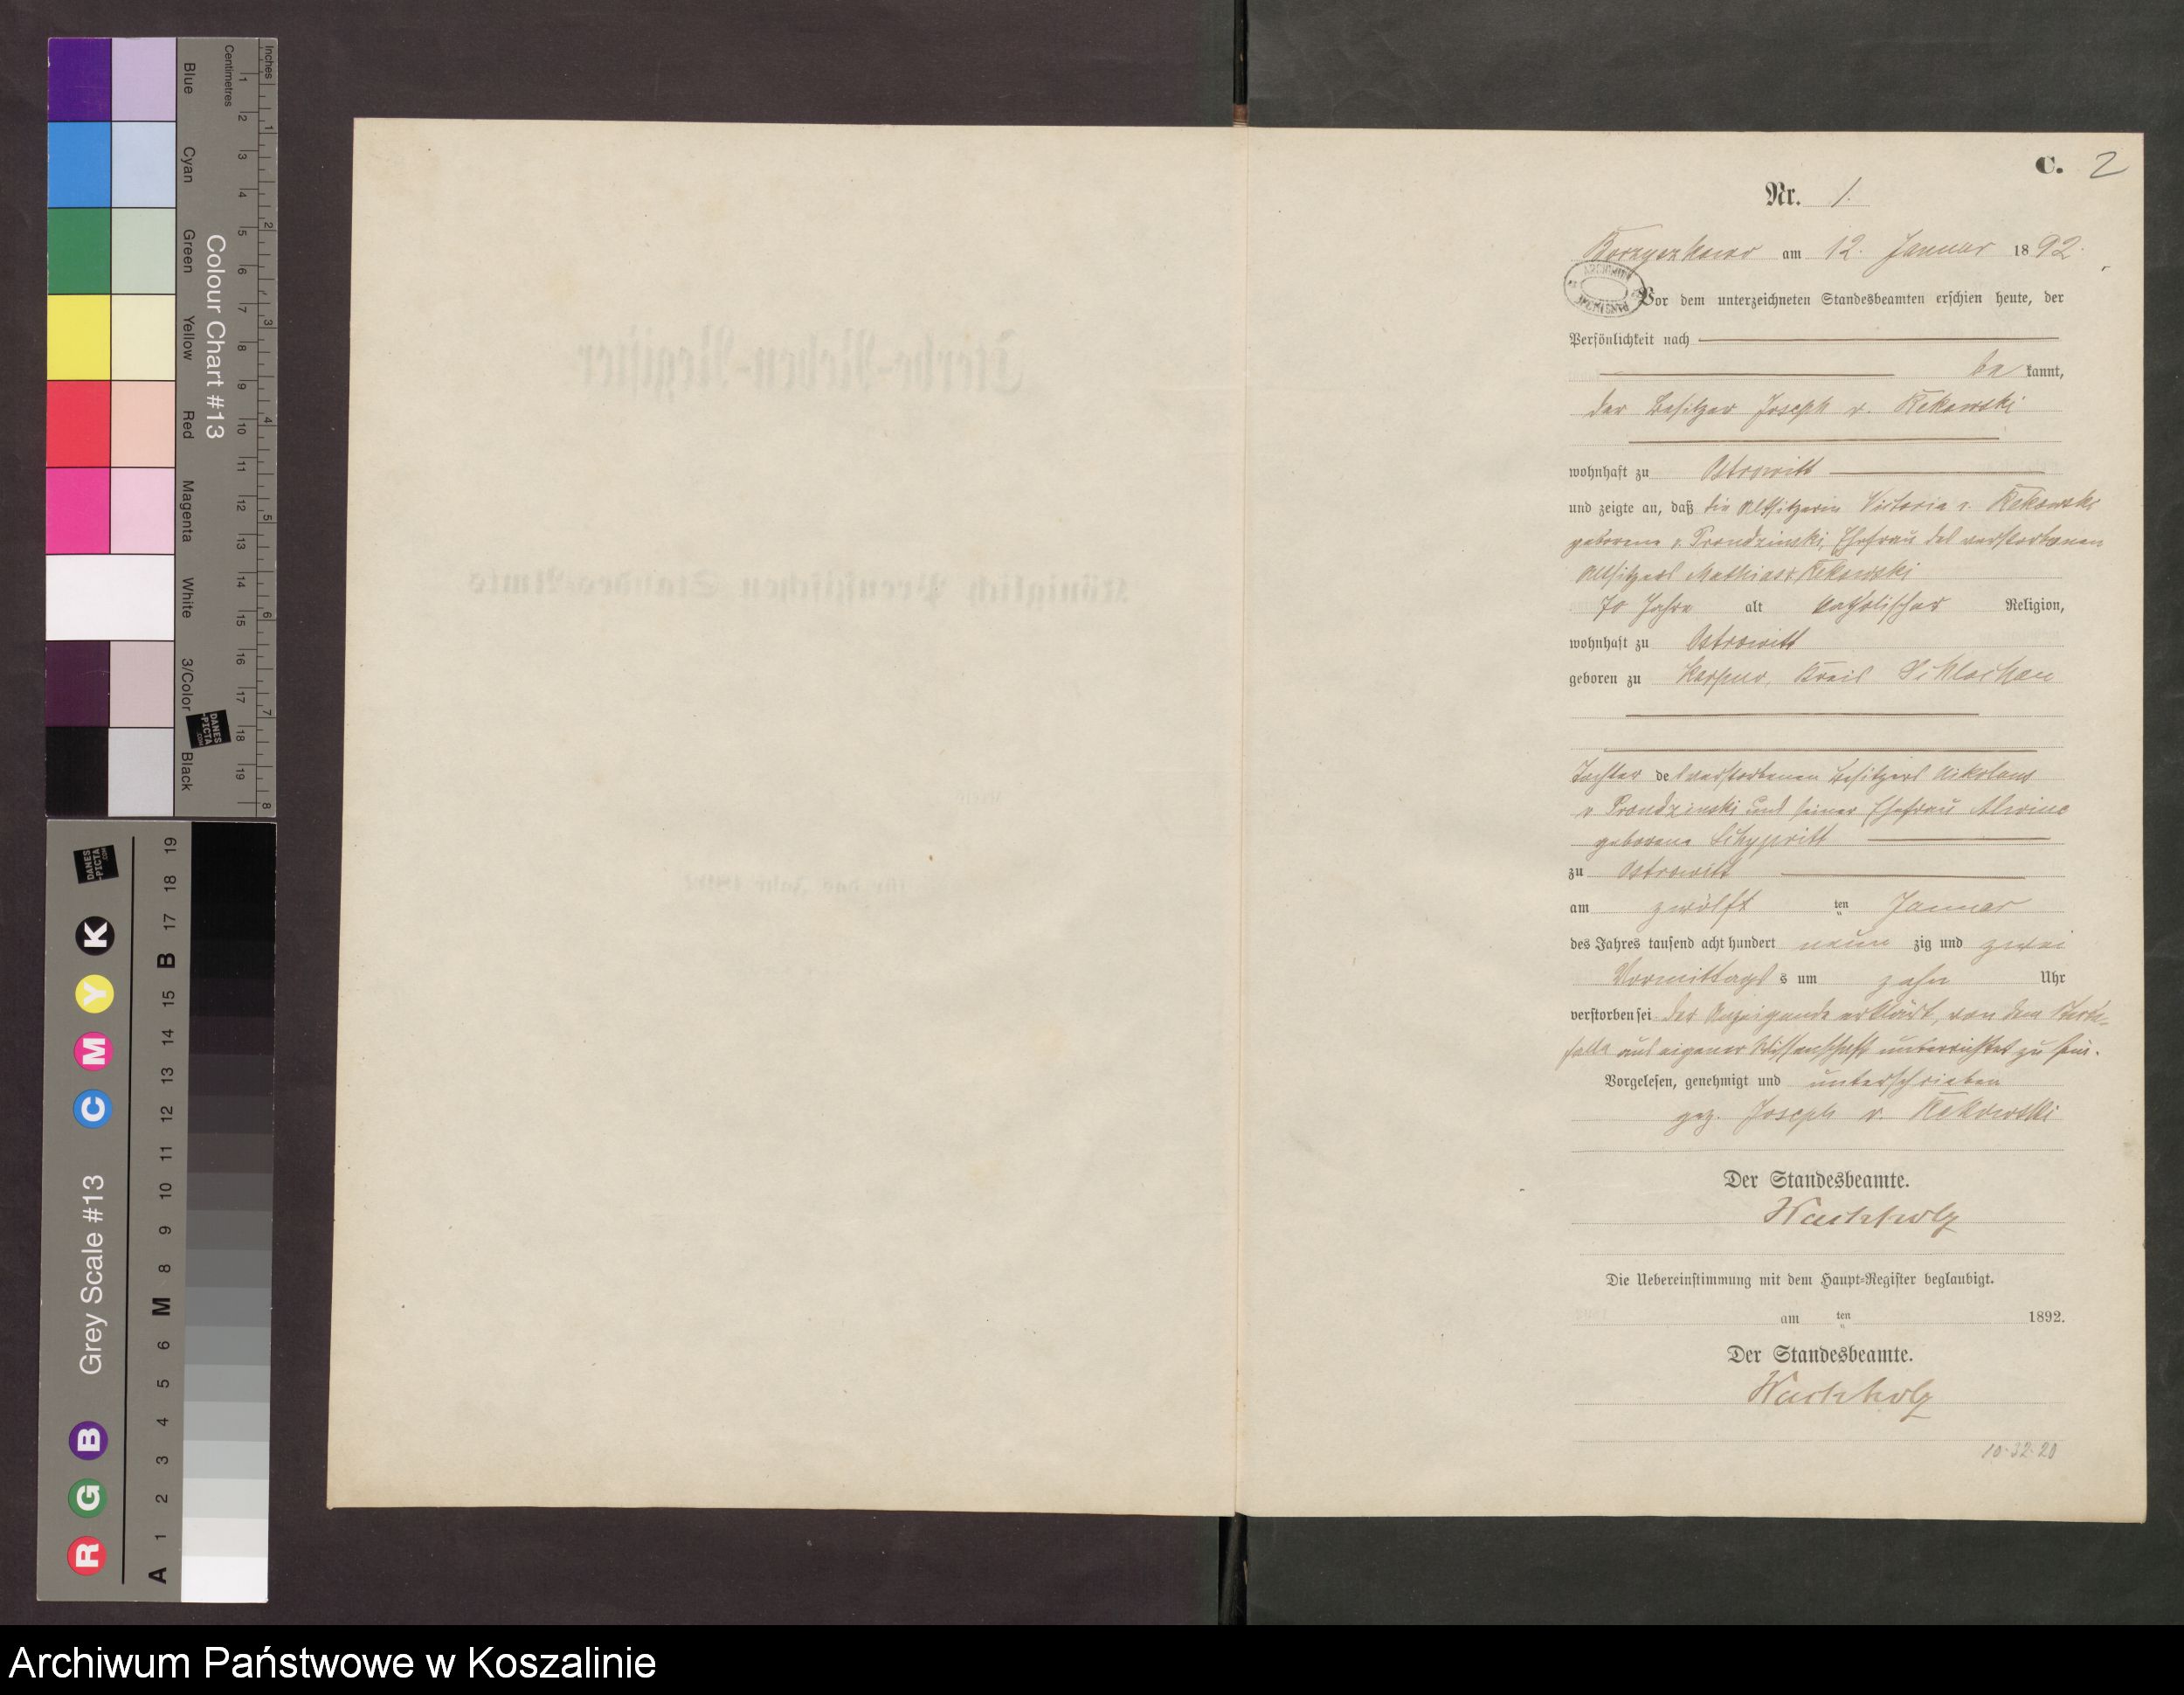 Inches
Centimetres
1 2 3 4 5 6 7 8 9 10 11 12 13 14 15 16 17 18 19
1 2 3 4 5 6 7 8
Colour Chart #13
Blue
Cyan
Green
Yellow
Red
Magenta
White
3/Color
Black
DANES
-PICTA
.COM
Grey Scale #13
R G B C M Y K
A 1 2 3 4 5 6 M 8 9 10 11 12 13 14 15 B 17 18 19
DANES
-PICTA
.COM
Sterbe-Neben-Register
Königlich Preußischen Standes-Amts
für das Jahr 1892
C. 2
Nr. 1.
Borzyszkowo am 12. Januar 1892.
Vor dem unterzeichneten Standesbeamten erschien heute, der
Persönlichkeit nach
bekannt,
der Besitzer Joseph v. Rekowski
wohnhaft zu Ostrowitt
und zeigte an, daß die Altsitzerin Victoria v. Rekowski
geborene v. Prondzinski, Ehefrau des verstorbenen
Altsitzers Mathias v. Rekowski
70 Jahre alt katholischer Religion,
wohnhaft zu Ostrowitt
geboren zu Kreis Schlochau
Tochter des verstorbenen Besitzers Nikolaus
v Prondzinski und seiner Ehefrau
geborene
zu Ostrowitt
am zwölften Januar
des Jahres tausend acht hundert neunzig und zwei
Vormittags um zehn Uhr
verstorben sei der Anzeigende erklärt, von dem Sterbe-
falle aus eigener Wissenschaft unterrichtet zu sein.
Vorgelesen, genehmigt und unterschrieben
gez. Joseph v. Rekowski
Der Standesbeamte.
Wachholz
Die Uebereinstimmung mit dem Haupt-Register beglaubigt.
am ten 1892.
Der Standesbeamte.
Wachholz
10.32.20
Archiwum Państwowe w Koszalinie